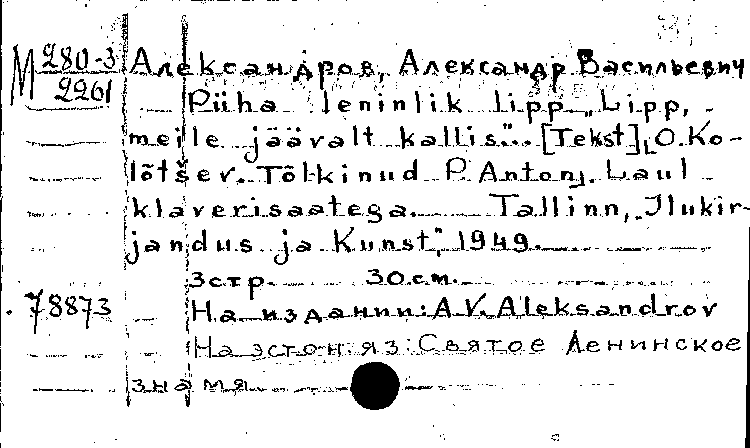 М 280-3 Александров, Александр Васильевич
2261 Püha leninlik lipp „Lipp,
meile jäävalt kallis"... [Tekst], O. Ko-
lõtšev. Tõlkinud P. Antonj. Laul
klaverisaatega. Tallinn, „Ilukir-
jandus ja Kunst", 1949.
3 стр. 30 см.
78873 На издании: A.V. Aleksandrov
На эстон. яз: Святое Ленинское
знамя